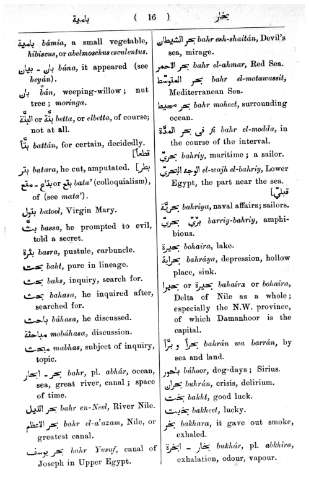 بامية ( 16 ) بخار
بامية bámia, a small vegetable,
hibiscus, or abelmoschus esculentus.
بان - بيان bána, it appeared (see
beyán).
بان bán, weeping-willow ; nut
tree ; moringa.
بتة or البتة batta, or elbetta, of course;
not at all.
بتّاتًا battán, for certain, decidedly.
بتر batara, he cut, amputated.
بتع or بتاع bata' (colloquialism),
of (see mata').
بتول batool, Virgin Mary.
بسّ bassa, he prompted to evil,
told a secret.
بثرة basra, pustule, carbuncle.
بحت baht, pure in lineage.
بحث bahs, inquiry, search for.
بحث bahasa, he inquired after,
searched for.
باحث báhasa, he discussed.
مباحثة mobáhasa, discussion.
مبحث mabhas, subject of inquiry,
topic.
بحر - ابحار bahr, pl. abhár, ocean,
sea, great river, canal ; space
of time.
بحر النيل bahr en-Neel, River Nile.
بحر الاعظم bahr el-a'azam, Nile, or
greatest canal.
بحر يوسف bahr Yusuf, canal of
Joseph in Upper Egypt.
بحر الشيطان bahr esh-shaitán, Devil's
sea, mirage.
بحر الاحمر bahr el-ahmar, Red Sea.
بحر المتوسط bahr el-motawassit,
Mediterranean Sea.
بحر محيط bahr moheet, surrounding
ocean.
في بحر المدّة fi bahr el-modda, in
the course of the interval.
بحريّ bahriy, maritime ; a sailor.
الوجه البحريّ el-wajh el-bahriy, Lower
Egypt, the part near the sea.
بحريّة bahriya, naval affairs; sailors.
برّيّ بحريّ barriy-bahriy, amphi-
bious.
بحيرة bohaira, lake.
بحراية bahráya, depression, hollow
place, sink.
بحيرة or بحيرا bahaira or bohaira,
Delta of Nile as a whole ;
especially the N.W. province,
of which Damanhoor is the
capital.
بحرًا و برًّا bahrán wa barrán, by
sea and land.
باحور báhoor, dog-days ; Sirius.
بحران bahrán, crisis, delirium.
بخت bakht, good luck.
بخيت bakheet, lucky.
بخر bakhara, it gave out smoke,
exhaled.
بخار - ابخرة bukhár, pl. abkhira,
exhalation, odour, vapour.